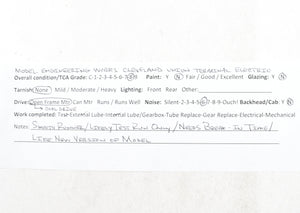 MODEL ENGINEERING WORKS CLEVELAND UNION TERMINAL ELECTRIC
Overall condition/TCA Grade: C-1-2-3-4-5-6-7-8-9 Paint: Y N Fair / Good / Excellent Glazing: Y N
Tarnish: None Mild / Moderate / Heavy Lighting: Front Rear Other:
Drive: Open Frame Mtr Can Mtr Runs / Runs Well Noise: Silent-2-3-4-5-6-7-8-9-Ouch! Backhead/Cab: Y N
Work completed: Test-External Lube-Internal Lube/Gearbox-Tube Replace-Gear Replace-Electrical-Mechanical
Notes: SMOOTH RUNNER/LIKELY TEST RUN ONLY/NEEDS BREAK-IN TIME/
LIKE NEW VERSION OF MODEL